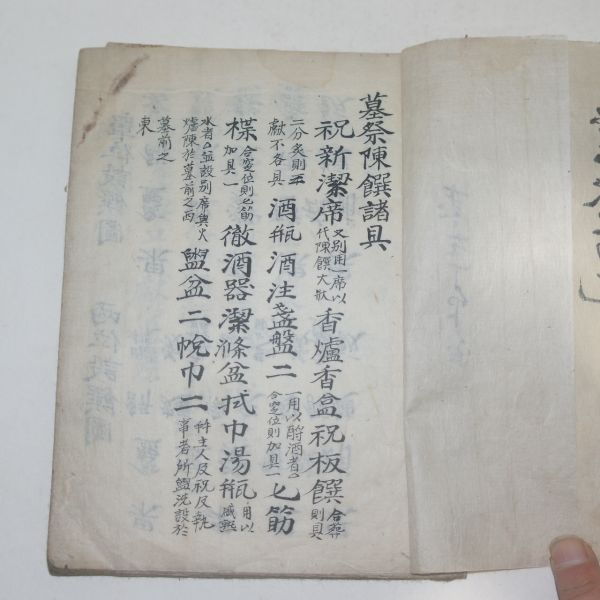 墓祭陳饌諸具
祝新潔席 又别用一席以代陳饌大牀 香爐香盒祝板饌 合葬則具
二分炙則 獻不各具 酒瓶酒注盞盤二 一用以酹酒者 合窆位則加具一 匕筋
楪 合窆位則匕筋加具一 徹酒器潔滌盆拭巾湯瓶 用以盛熟
水者 並設别席與火爐陳於墓前之西 盥盆二帨巾二 主人及祝及執事者所盥洗設於
墓前之東